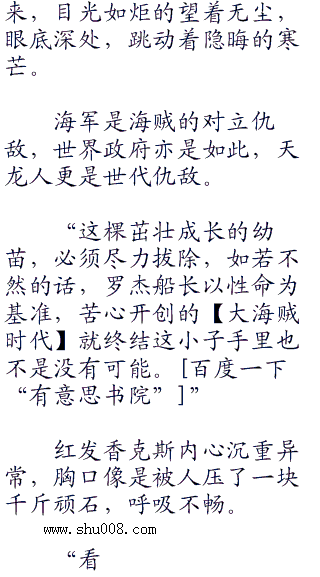 来，目光如炬的望着无尘，
眼底深处，跳动着隐晦的寒
芒。
海军是海贼的对立仇
敌，世界政府亦是如此，天
龙人更是世代仇敌。
“这棵茁壮成长的幼
苗，必须尽力拔除，如若不
然的话，罗杰船长以性命为
基准，苦心开创的【大海贼
时代】就终结这小子手里也
不是没有可能。[百度一下
“有意思书院”]”
红发香克斯内心沉重异
常，胸口像是被人压了一块
千斤顽石，呼吸不畅。
www.shu008.com
“看